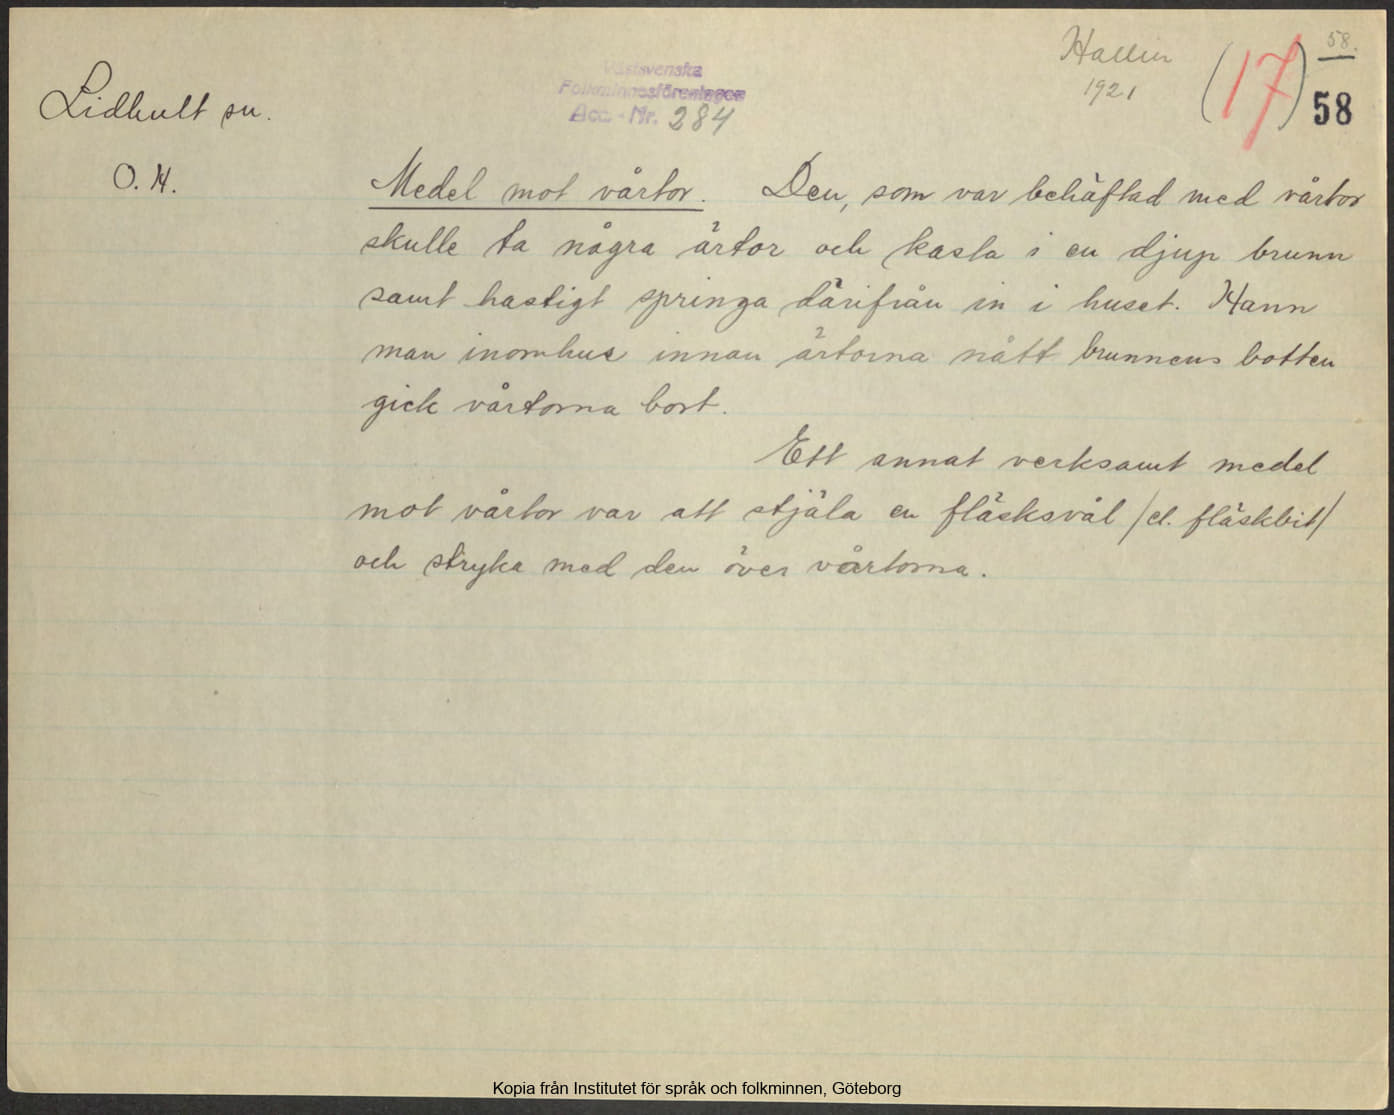 Hallin
58.
Västsvenska
(17)
Folkminnesföreningen
1921
58
Lidhult sn.
Acc.-Nr. 284
O. H.
Medel mot vårtor. Den, som var behäftad med vårtor
skulle ta några ärtor och kasta i en djup brunn
samt hastigt springa därifrån in i huset. Hann
man inomhus innan ärtorna nått brunnens botten
gick vårtorna bort.
Ett annat verksamt medel
mot vårtor var att stjäla en fläsksvål /el. fläskbit/
och stryka med den över vårtorna.
Kopia från Institutet för språk och folkminnen, Göteborg